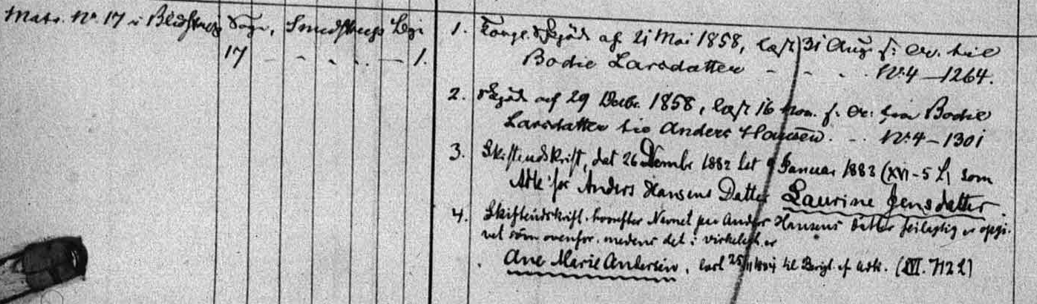 Matr. Nr. 17 i Sogn, Smedstrup
17 - - - - 1.
1. Konge Skjøde af 21 Mai 1858, læst 31 Aug. s: A. til
Bodie Larsdatter - - - Nr. 4-1264.
2. Skjøde af 29 Decbr. 1858, læst 16 s. A: fra Bodie
Larsdatter til Anders Hansen. - - Nr. 4-1301
3. Skifteudskrift, dat 26 Decembr 1882 let 9 Januar 1883 (XVI-5 som
Adk: for Anders Hansens Datter Laurine Jensdatter.
4. Skifteudskrift. hvorefter Navnet paa Anders Hansens Datter feilagtig er opgi-
vet som ovenfor. medens det i virkeligh. er
Ane Marie Andersen, til af Adk. (III. 712